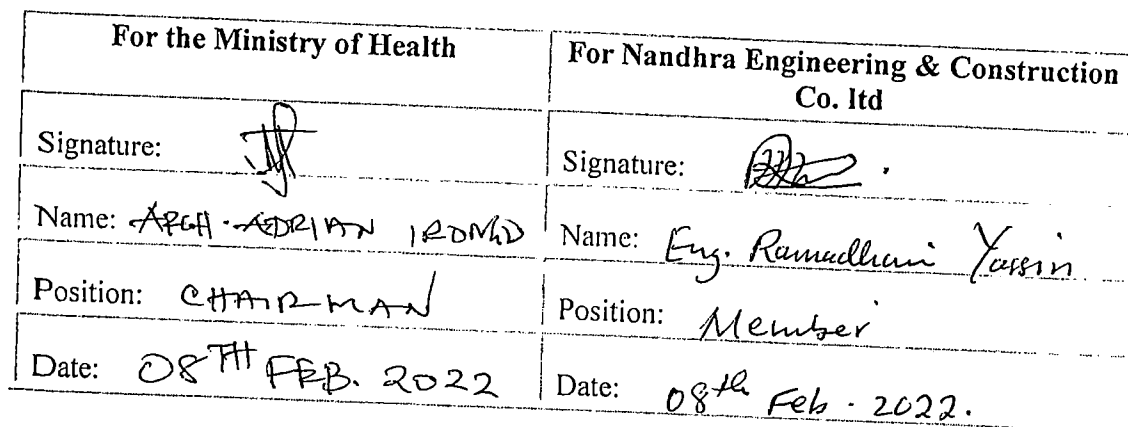 For the Ministry of Health
For Nandhra Engineering & Construction
Co. ltd
Signature:
Signature:
Name: ARCH. ADRIAN
Name: Eng. Ramadhani Yassin
Position: CHAIRMAN
Position: Member
Date: 08TH FEB. 2022
Date: 08th Feb. 2022.